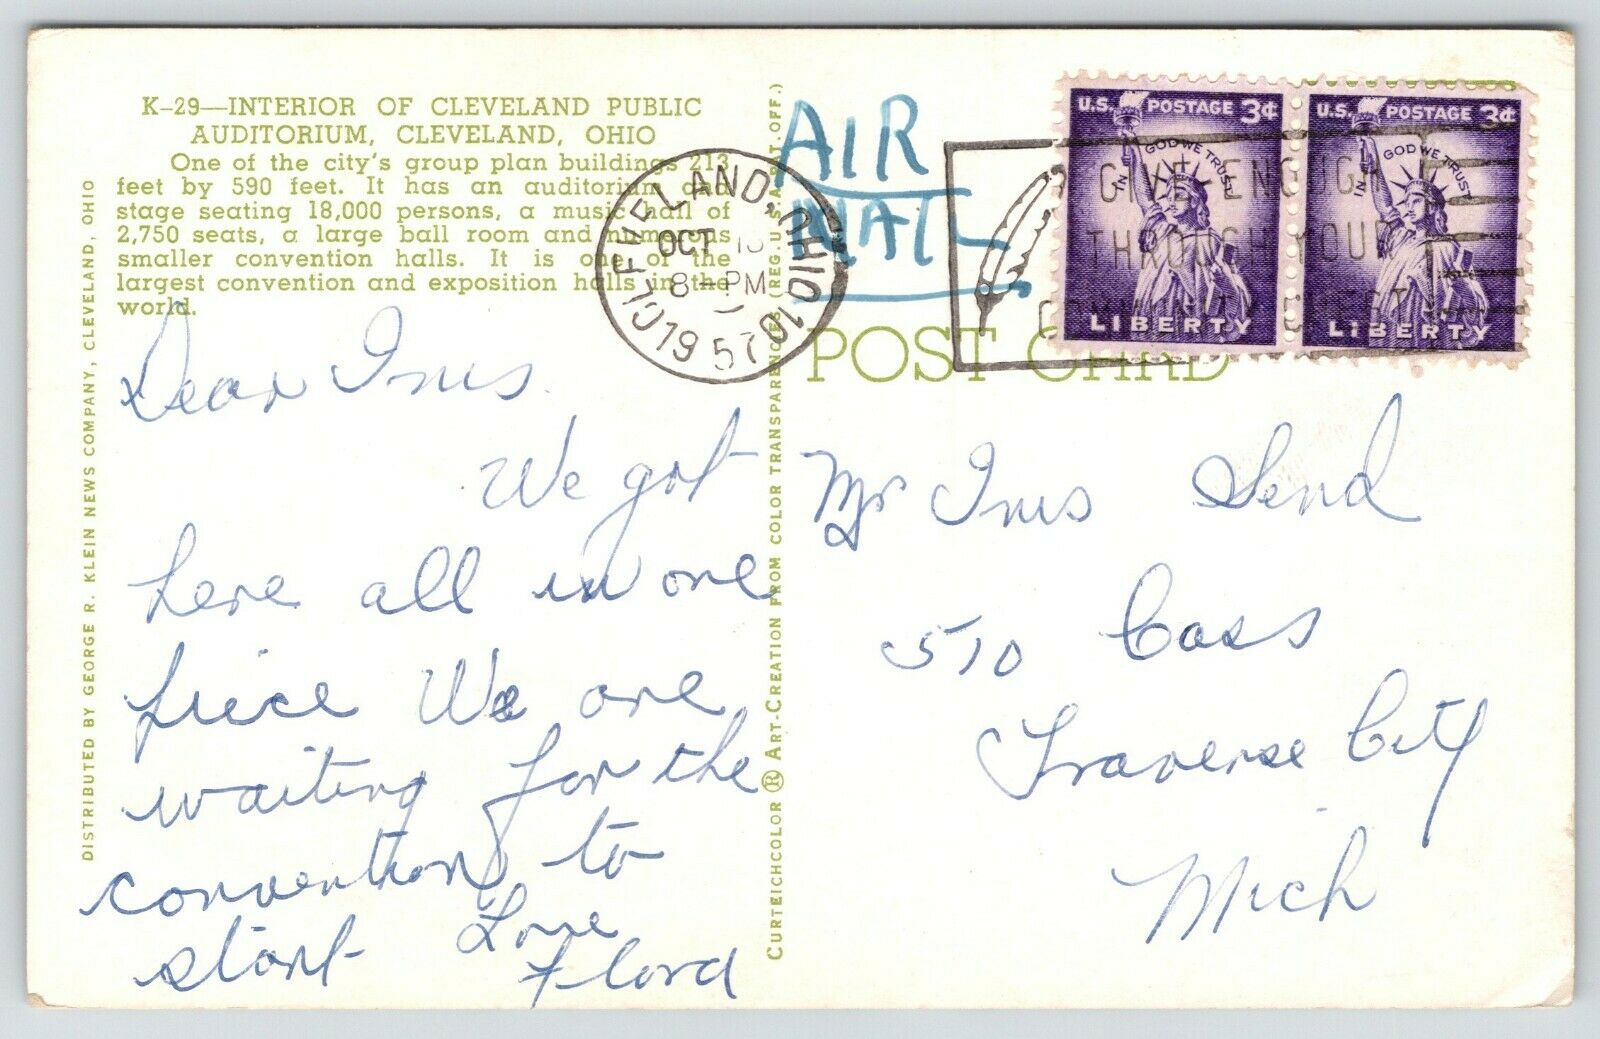 K-29—INTERIOR OF CLEVELAND PUBLIC
AUDITORIUM, CLEVELAND, OHIO
One of the city's group plan buildings 213
feet by 590 feet. It has an auditorium and
stage seating 18,000 persons, a music hall of
2,750 seats, a large ball room and numerous
smaller convention halls. It is one of the
largest convention and exposition halls in the
world.
DISTRIBUTED BY GEORGE R. KLEIN NEWS COMPANY, CLEVELAND, OHIO
Dear Inis
We got
here all in one
piece We are
waiting for the
convention to
start Love
Flora
CURTEICHCOLOR ® ART-CREATION FROM COLOR TRANSPARENCIES (REG. U.S.A. PAT. OFF.)
CLEVELAND, OHIO
OCT
8-PM
1957
AIR
MAIL
POST CARD
U.S. POSTAGE 3¢
IN GOD WE TRUST
LIBERTY
U.S. POSTAGE 3¢
IN GOD WE TRUST
LIBERTY
GIVE ENOUGH
THROUGH YOUR
COMMUNITY CHEST
Mrs Inis Send
510 Cass
Traverse City
Mich